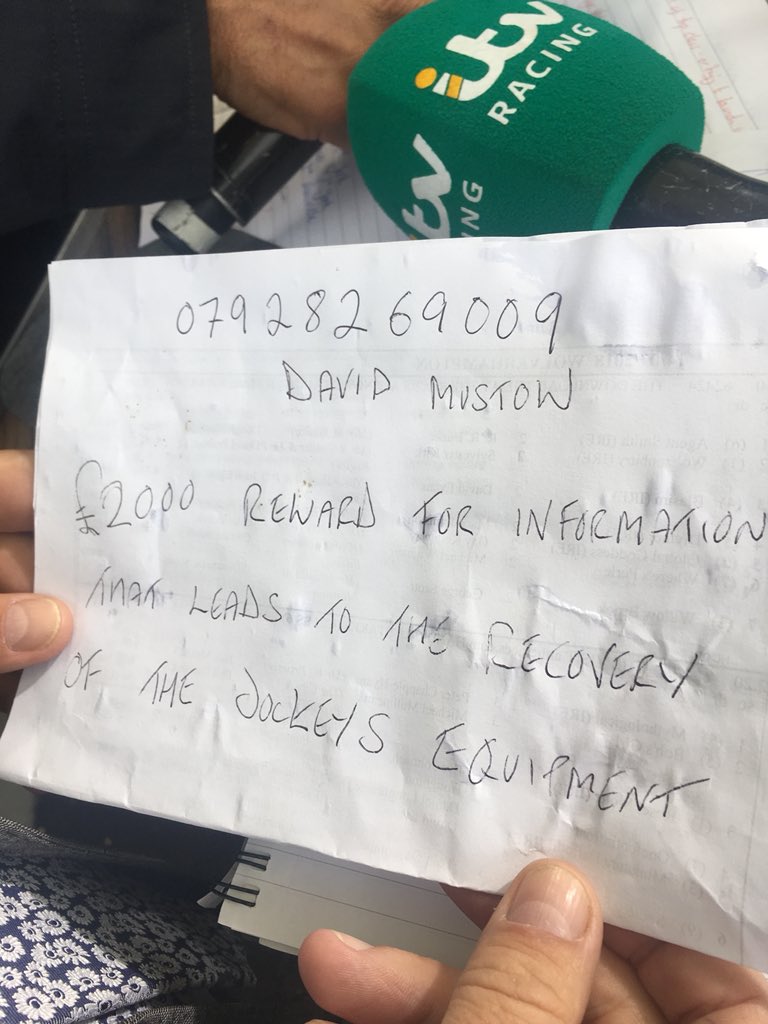 itv
RACING
itv
07928269009
DAVID MUSTOW
£2000 REWARD FOR INFORMATION
THAT LEADS TO THE RECOVERY
OF THE JOCKEYS EQUIPMENT